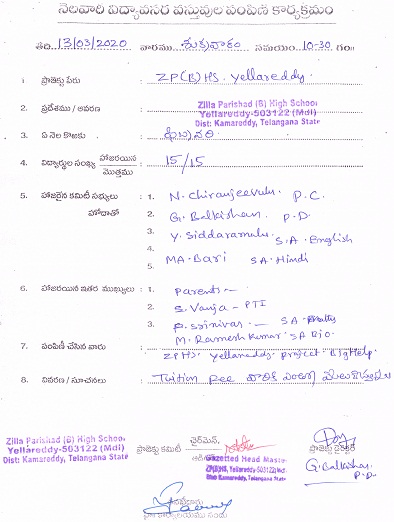 నెలవారి విద్యావసర వస్తువుల పంపిణి కార్యక్రమం
తేది 13/03/2020 వారము శుక్రవారం సమయం 10-30 గం॥
1 ప్రాజెక్టు పేరు : ZP(B)HS. Yellareddy.
2. ప్రదేశము / ఆవరణ : Zilla Parishad (B) High School
Yellareddy-503122 (Mdl)
Dist: Kamareddy, Telangana State
3. ఏ నెల కొఱకు : ఫిబ్రవరి
4. విద్యార్థుల సంఖ్య హాజరయిన / మొత్తము : 15/15
5. హాజరైన కమిటీ సభ్యులు : 1. N. Chiranjeevulu. P.C.
హోదాతో 2. G. Balkishan. P.D
3. Y. Siddaramulu. S.A. English
4. MA. Bari SA. Hindi
5.
6. హాజరయిన ఇతర ముఖ్యులు : 1. Parents -
2. S. Vanja - PTI
3. P. Srinivas. - SA
M. Ramesh Kumar SA Bio.
7. పంపిణీ చేసిన వారు : ZPHS. Yellareddy. project Big Help.
8. వివరణ / సూచనలు : Tuition Fee
Zilla Parishad (B) High School
Yellareddy-503122 (Mdl)
Dist: Kamareddy, Telangana State
ప్రాజెక్టు కమిటీ చైర్మెన్,
Gazetted Head Master
ZP(B)HS, Yellareddy-503122(Mdl)
Dist: Kamareddy, Telangana State
ప్రాజెక్టు డైరెక్టర్
G. Balkishan
P.D